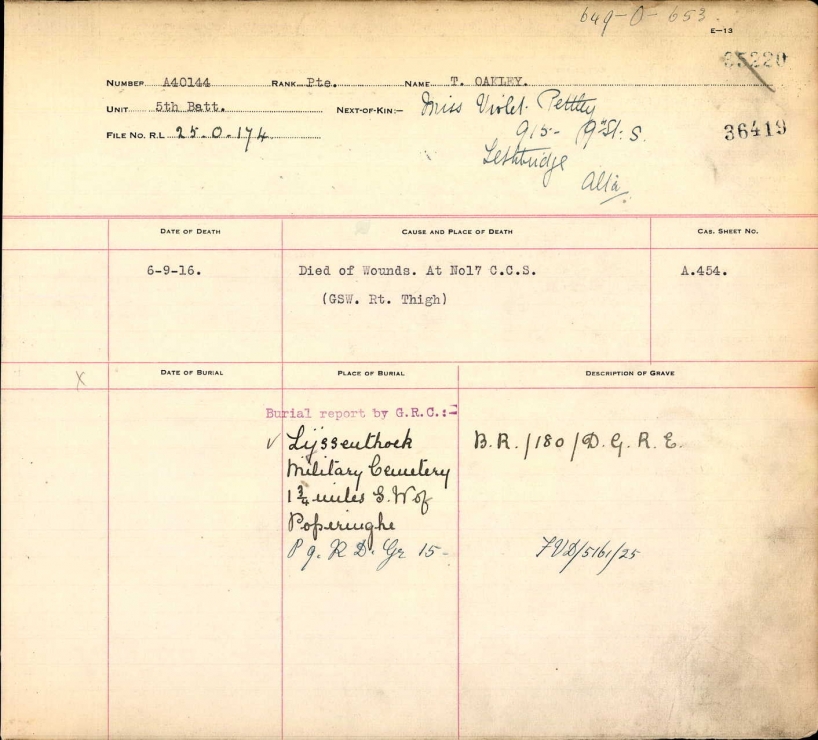 649-O-653.
E—13
65220
NUMBER A40144 RANK Pte. NAME T. OAKLEY.
UNIT 5th Batt. NEXT-OF-KIN:— Miss Violet
915- 9th St. S.
36419
FILE NO. R.L 25.O.174
Lethbridge
Alta.
DATE OF DEATH CAUSE AND PLACE OF DEATH CAS. SHEET NO.
6-9-16. Died of Wounds. At No17 C.C.S. A.454.
(GSW. Rt. Thigh)
X DATE OF BURIAL PLACE OF BURIAL DESCRIPTION OF GRAVE
Burial report by G.R.C.:-
✓ Lijssenthoek B.R./180/D.G.R.E.
Military Cemetery
1¾ miles S.W of
Poperinghe
P 9. R D. Gr 15 /5161/25